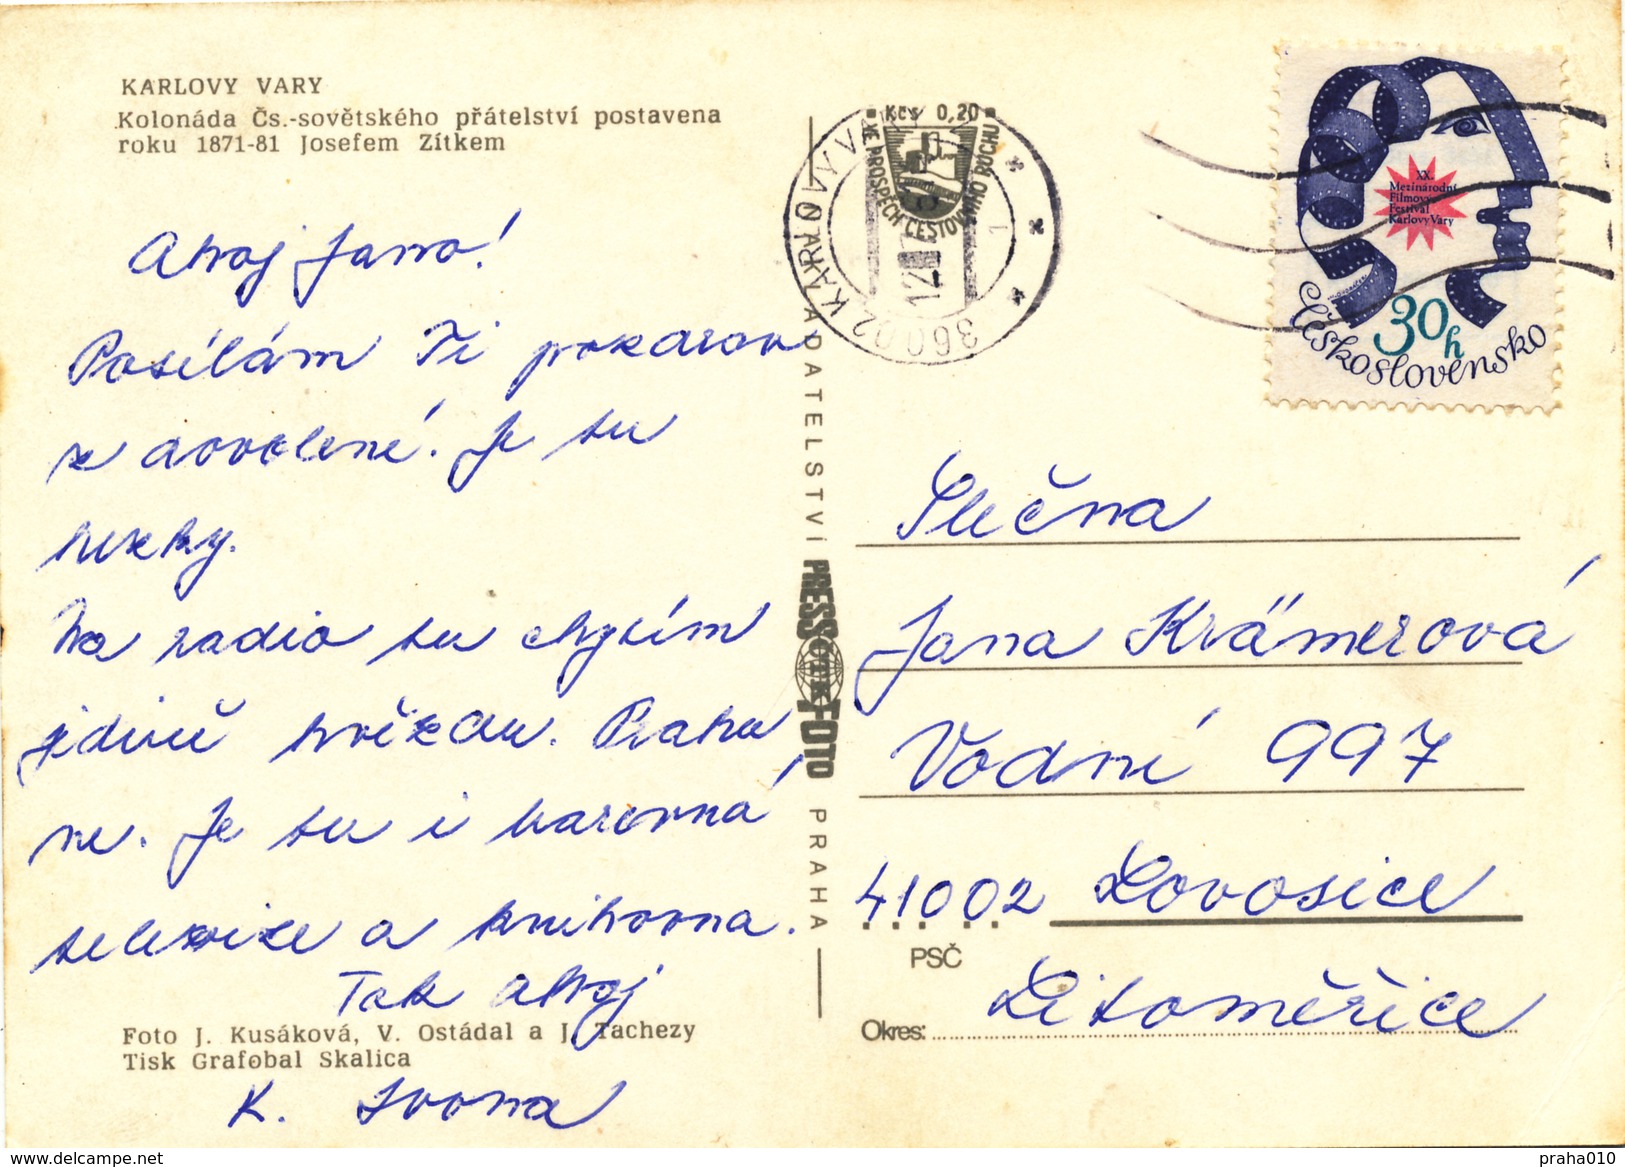 KARLOVY VARY
Kolonáda Čs.-sovětského přátelství postavena
roku 1871-81 Josefem Zítkem
Ahoj Jano!
Posílám Ti pozdrav
z dovolené. Je tu
hezky.
Na radio tu chytím
jedině hvězdu. Prahu
ne. Je tu i barevná
televize a knihovna.
Tak ahoj
Foto J. Kusáková, V. Ostádal a J. Tachezy
Tisk Grafobal Skalica
K. Ivona
VYDAVATELSTVÍ PRESSFOTO PRAHA
ČTK
Kčs 0,20
VE PROSPĚCH CESTOVNÍHO RUCHU
36002 KARLOVY VARY
12
XX.
Mezinárodní
Filmový
Festival
Karlovy Vary
30h
Československo
Slečna
Jana Krämerová
Vodní 997
41002 Lovosice
PSČ
Okres: Litoměřice
delcampe.net
praha010